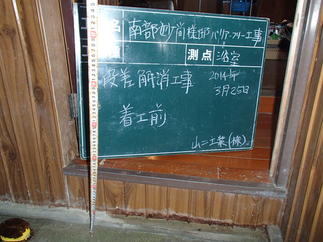 名 南部妙尚様邸バリアフリー工事
測点 浴室
段差解消工事
2014年
3月25日
着工前
山二工業(株)